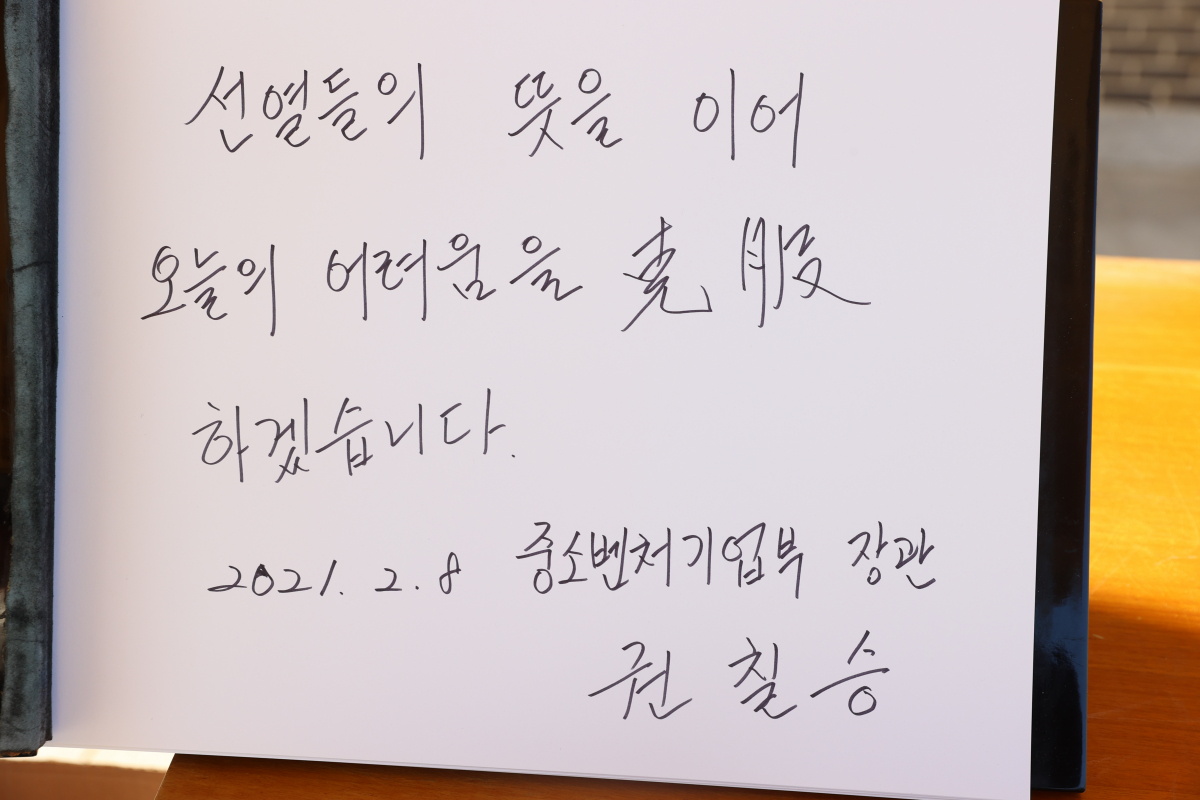 선열들의 뜻을 이어
오늘의 어려움을 克服
하겠습니다.
2021. 2. 8 중소벤처기업부 장관
권칠승